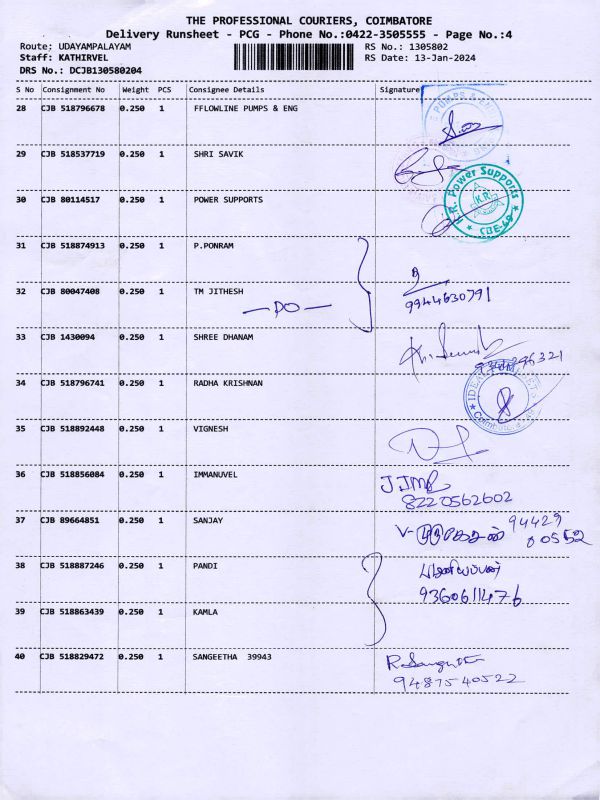 THE PROFESSIONAL COURIERS, COIMBATORE
Delivery Runsheet - PCG - Phone No.:0422-3505555 - Page No.:4
Route; UDAYAMPALAYAM
RS No.: 1305802
Staff: KATHIRVEL
RS Date: 13-Jan-2024
DRS No.: DCJB130580204
S No Consignment No Weight PCS Consignee Details Signature
28 CJB 518796678 0.250 1 FFLOWLINE PUMPS & ENG
PUMPS &
29 CJB 518537719 0.250 1 SHRI SAVIK
30 CJB 80114517 0.250 1 POWER SUPPORTS
K.R. Power Supports
K.R.
CBE-49
31 CJB 518874913 0.250 1 P.PONRAM
32 CJB 80047408 0.250 1 TM JITHESH
9944630791
— DO —
33 CJB 1430094 0.250 1 SHREE DHANAM
34 CJB 518796741 0.250 1 RADHA KRISHNAN
Coimbatore
35 CJB 518892448 0.250 1 VIGNESH
36 CJB 518856084 0.250 1 IMMANUVEL
8220562602
37 CJB 89664851 0.250 1 SANJAY
94429
00552
38 CJB 518887246 0.250 1 PANDI
9360611476
39 CJB 518863439 0.250 1 KAMLA
40 CJB 518829472 0.250 1 SANGEETHA 39943
9487540522